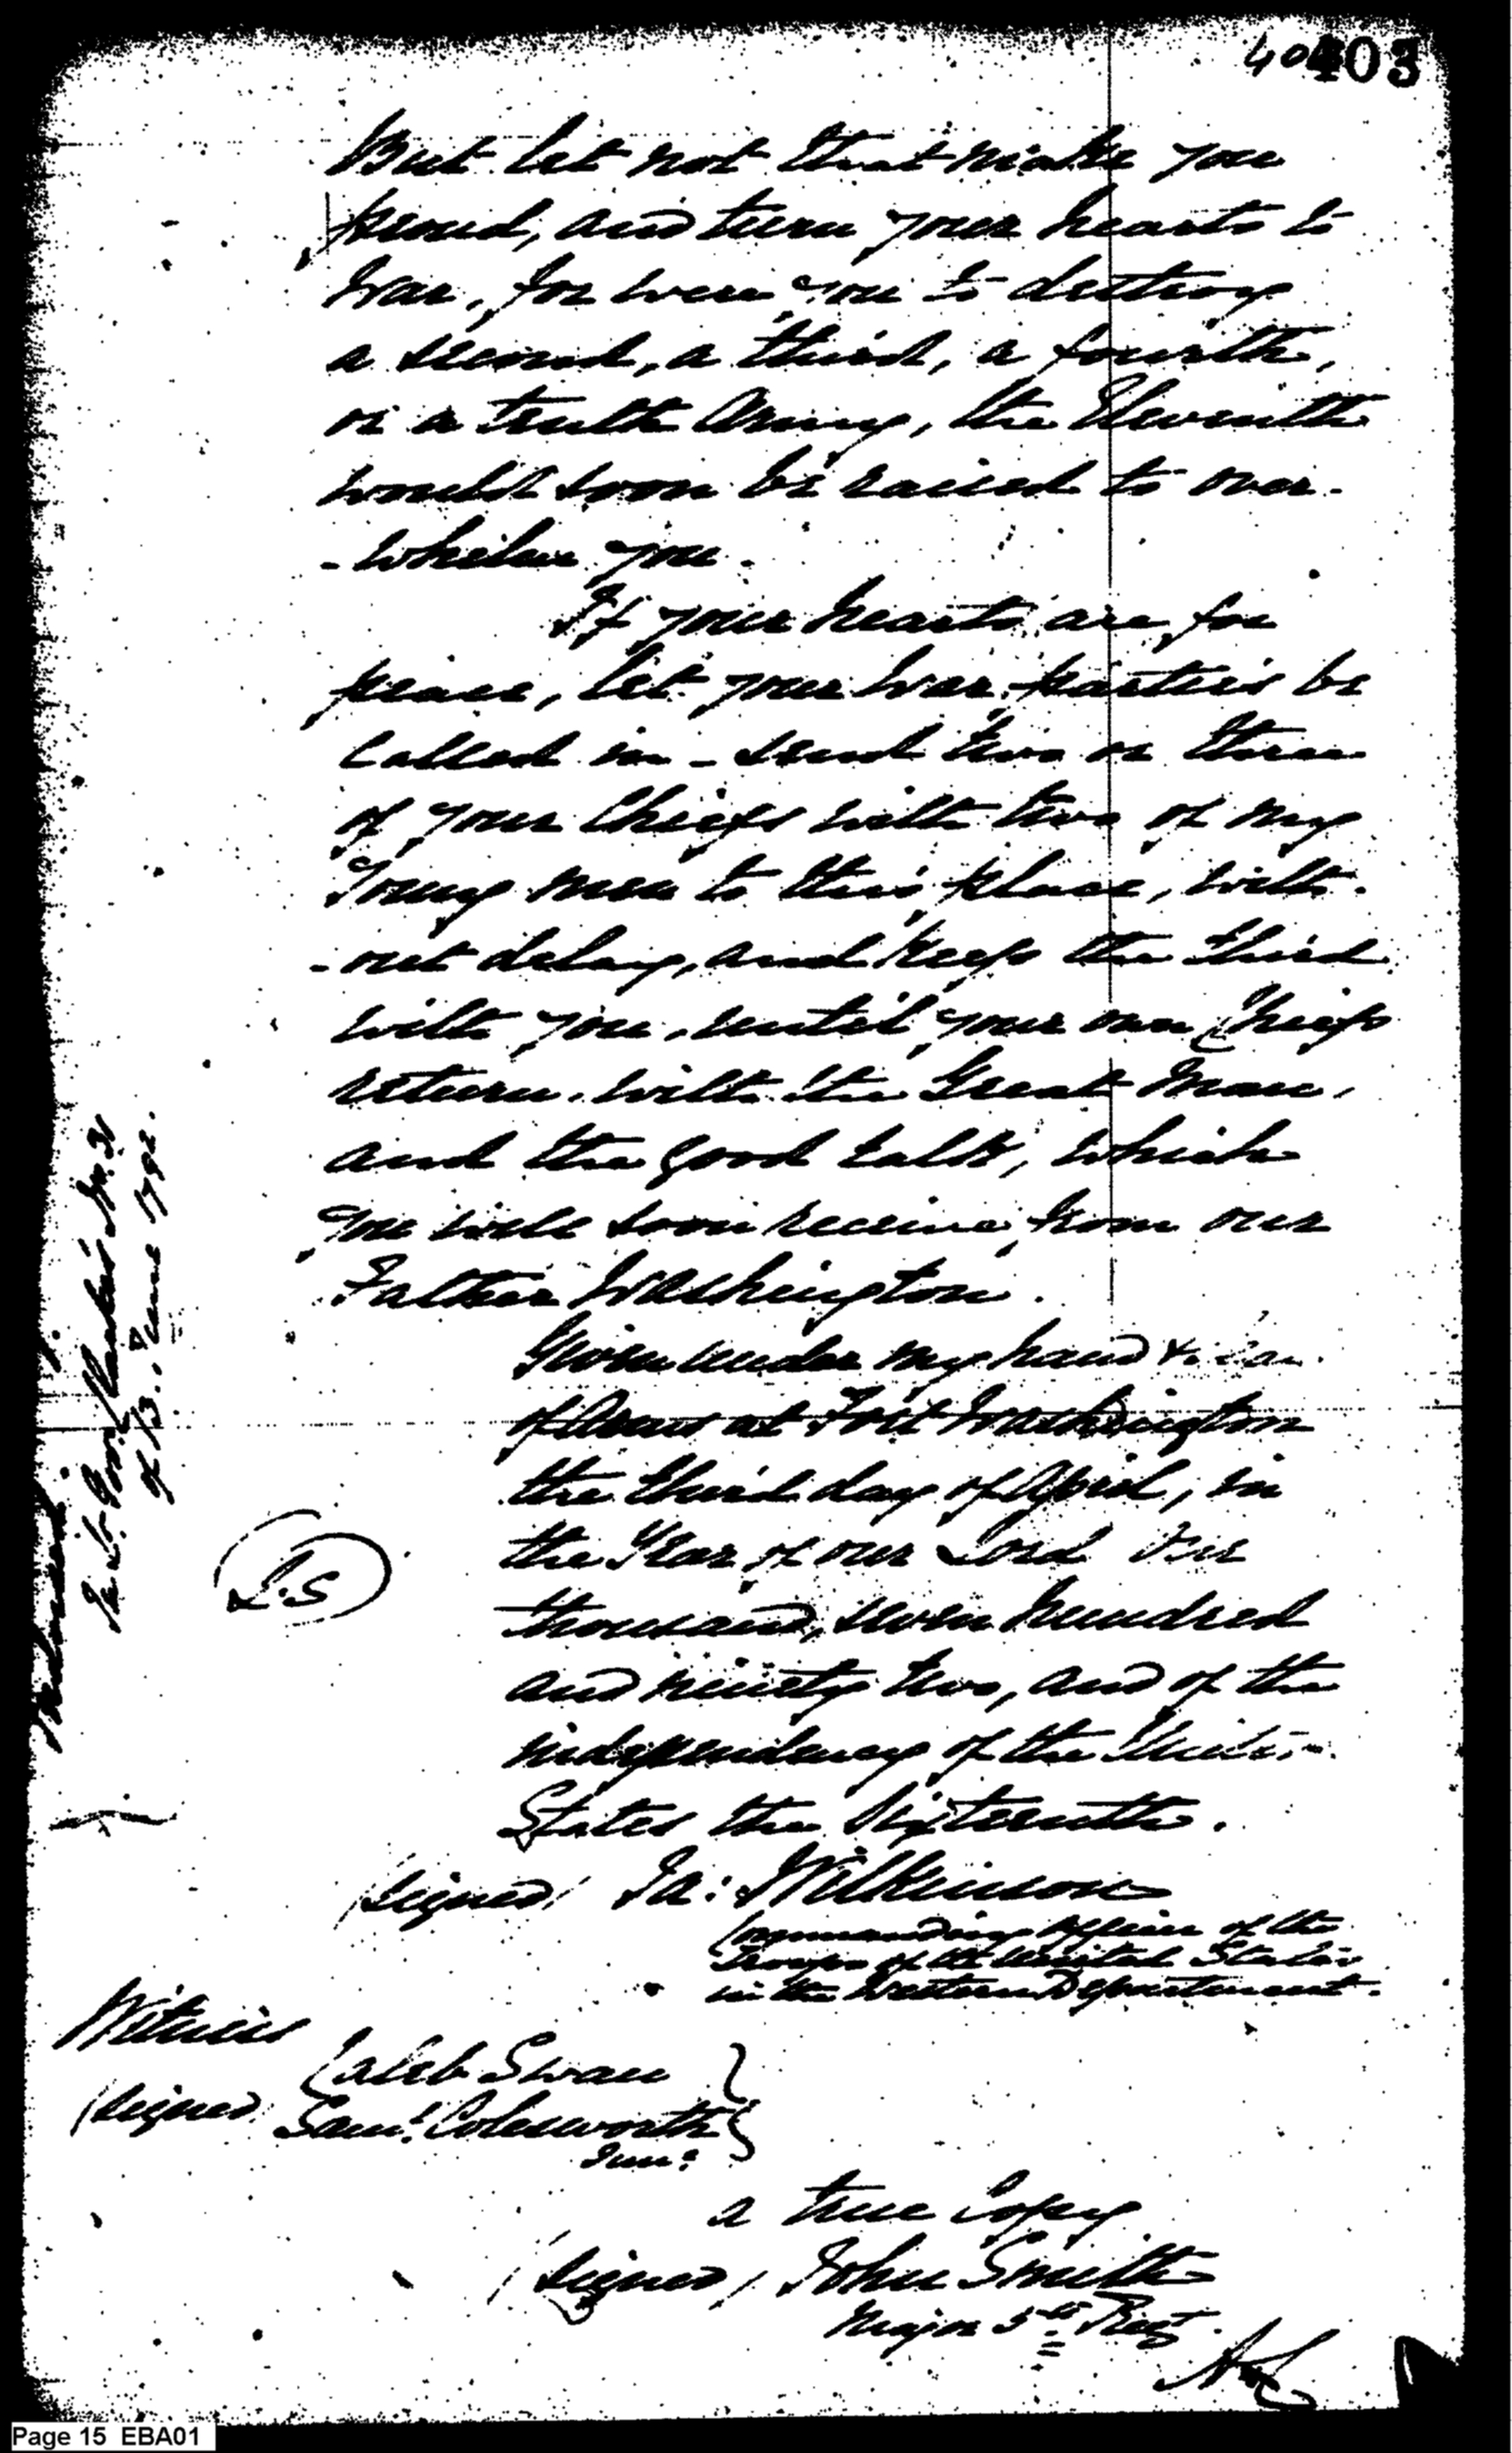 403
But let not that make you
proud, and turn your hearts to
War, for were you to destroy
a second, a third, a fourth,
or a tenth Army, the Eleventh
would soon be raised to over-
-whelm you.
If your hearts are for
peace, let your War parties be
Called in - send two or three
of your Chiefs with two of my
Young men to this place, with-
-out delay, and keep the third
with you, until your own Chiefs
return with the Great Man,
and the good talk, which
You will soon receive from our
Father Washington.
Given under my hand &
of Arms at Fort Washington
the third day of April, in
the Year of our Lord One
thousand, seven hundred
and ninety two, and of the
independency of the United
States the Sixteenth.
L.S
(signed) Ja: Wilkinson
Commanding Officer of the
Troops of the United States
in the Western Department.
Witness
Caleb Swan
(signed) Saml. Colesworth
Junr.
a true Copy
(signed) John Smith
Major 5th Regt.
In Lt. Gov. Clarke's No. 31
of 13. June 1792.
Page 15 EBA01